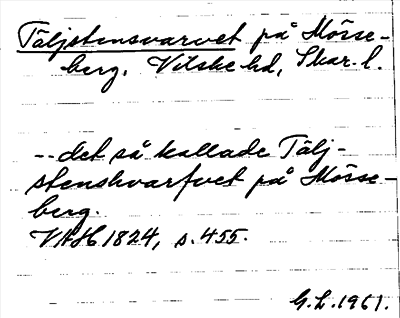 Täljstensvarvet på Mösse-
berg, Vilske hd, Skar. l.
-- det så kallade Tälj-
stenshvarfvet på Mösse-
berg.
VAH 1824, s. 455.
G. L. 1961.